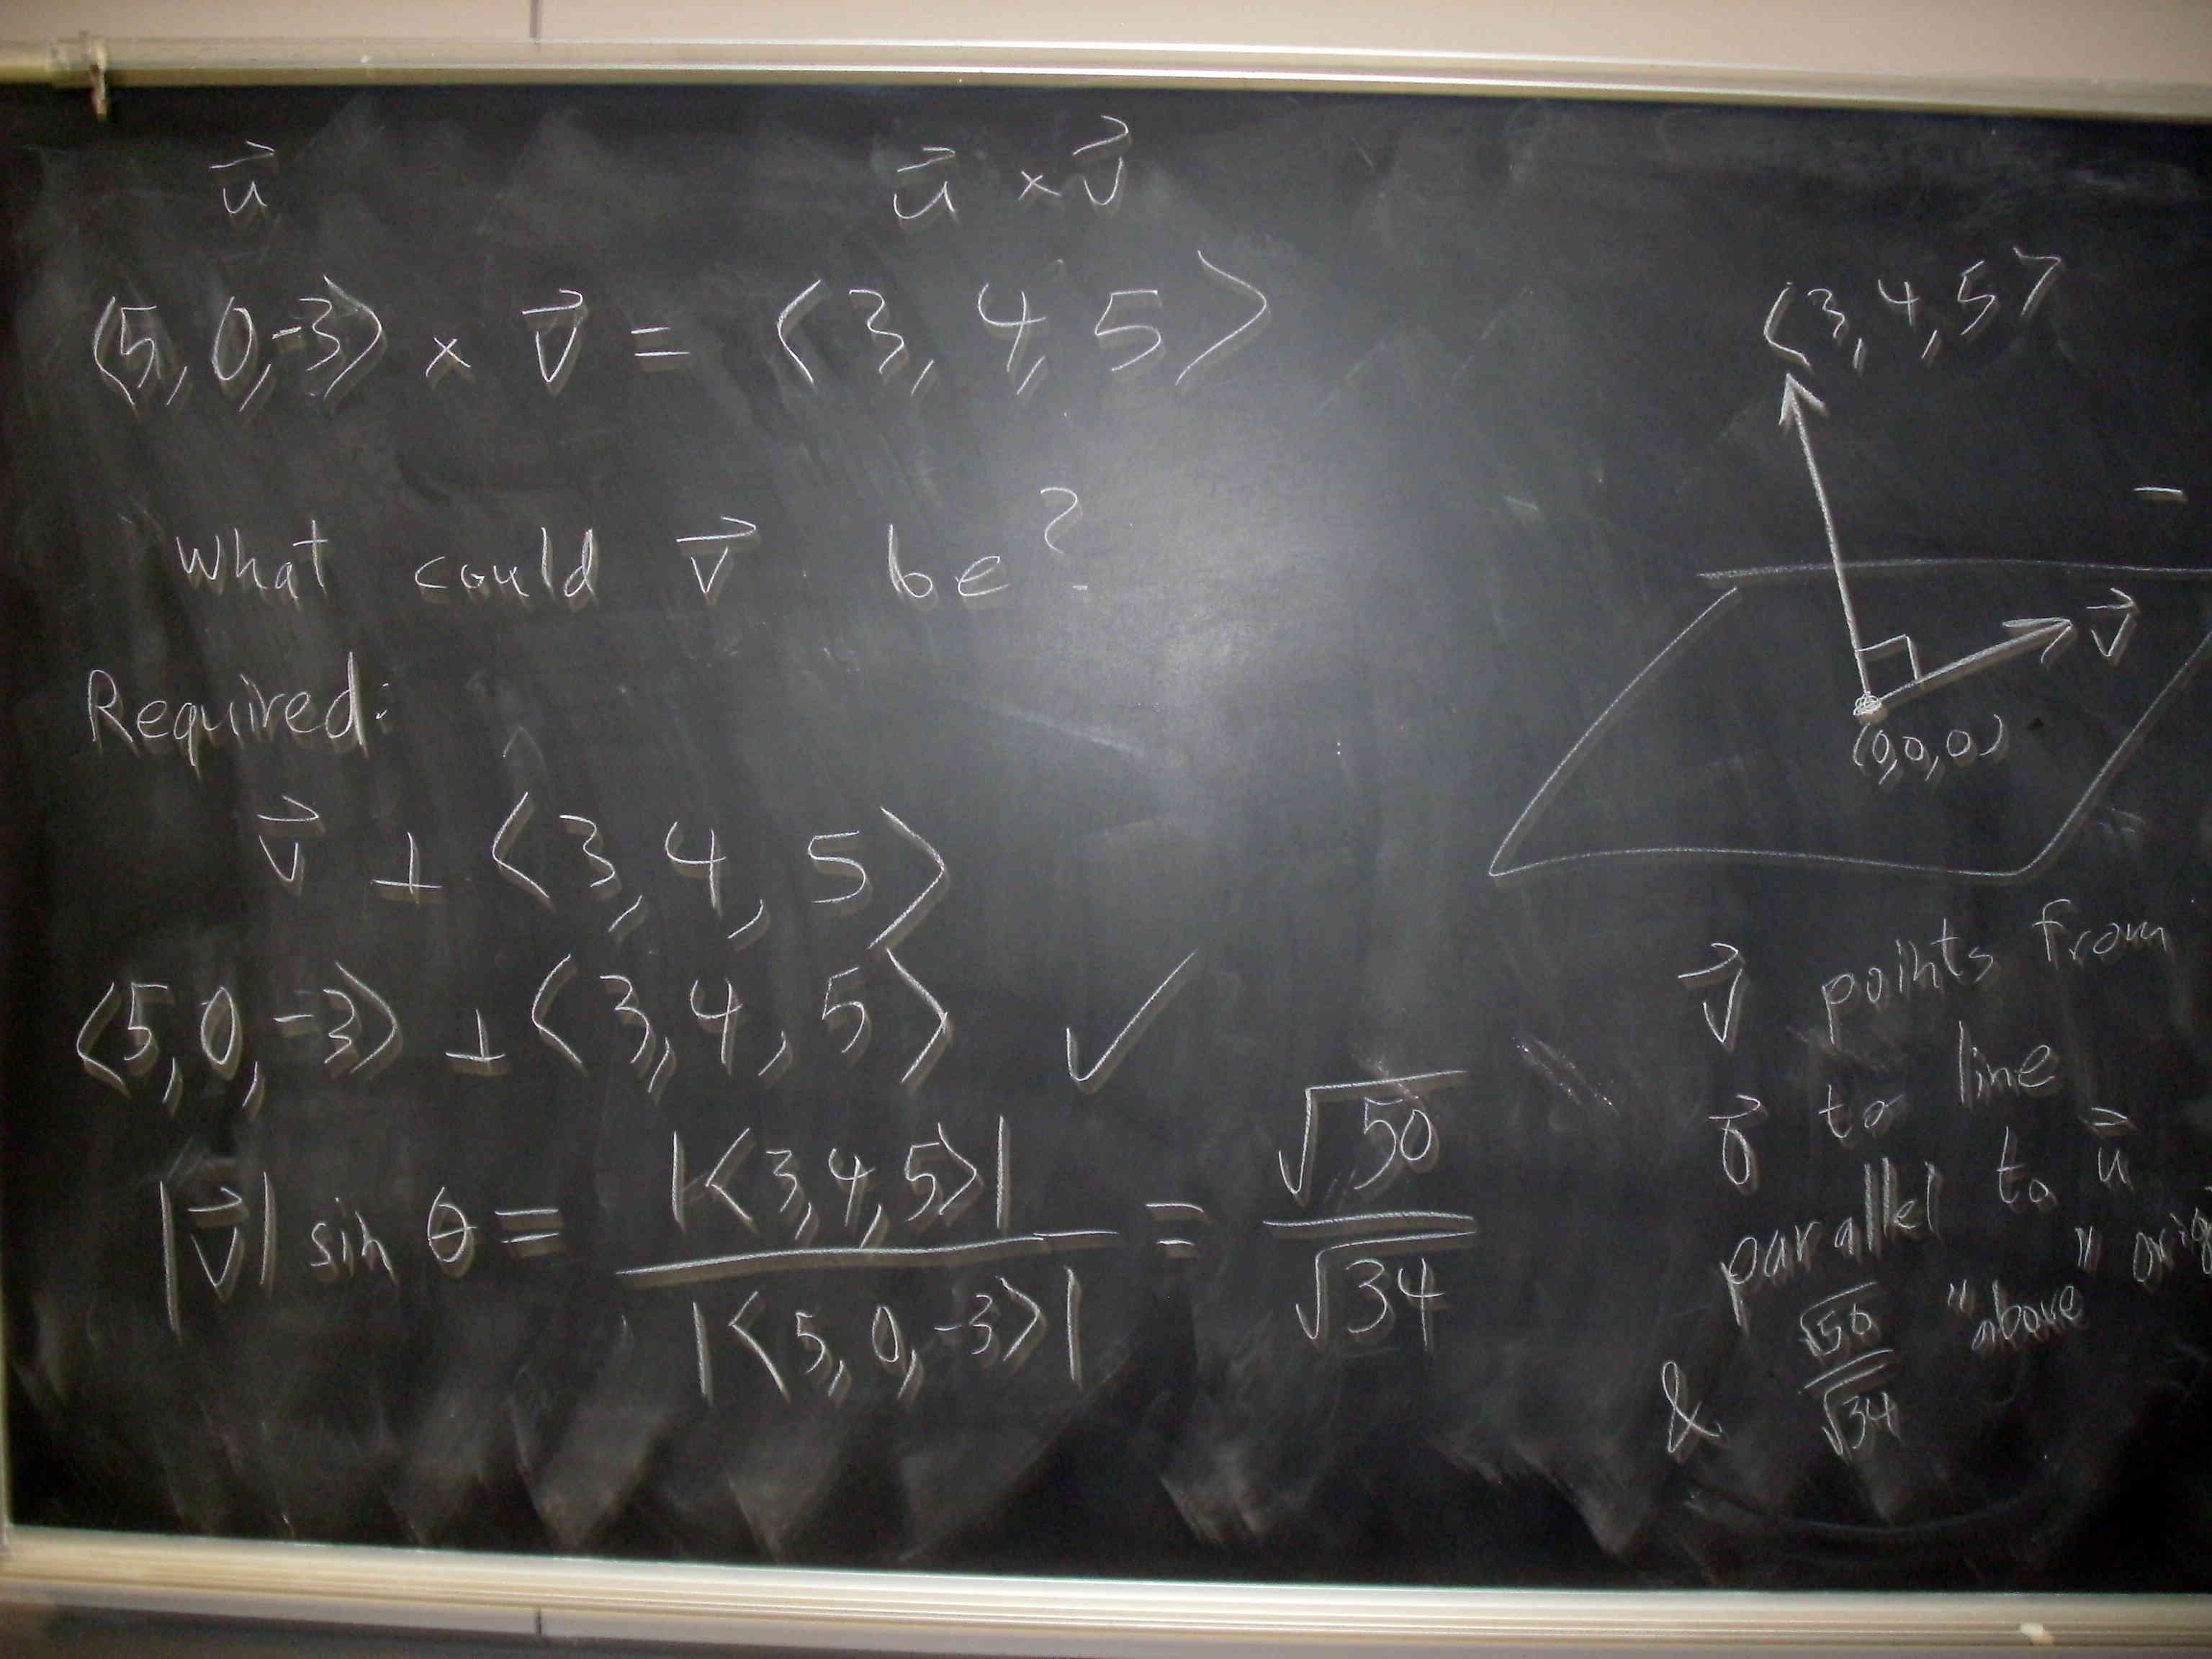 u⃗ u⃗ × v⃗
⟨5, 0, -3⟩ × v⃗ = ⟨3, 4, 5⟩
What could v⃗ be?
Required:
v⃗ ⊥ ⟨3, 4, 5⟩
⟨5, 0, -3⟩ ⊥ ⟨3, 4, 5⟩ ✓
|v⃗| sin θ = |⟨3, 4, 5⟩| / |⟨5, 0, -3⟩| = √50 / √34
⟨3, 4, 5⟩
v⃗
(0,0,0)
v⃗ points from
0⃗ to line
parallel to u⃗
& √50 / √34 "above"